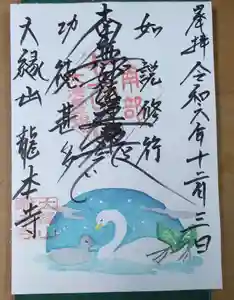 奉拝 令和六年十二月三日
如説修行
南無妙法蓮華経
功徳甚多
大縁山 龍本寺